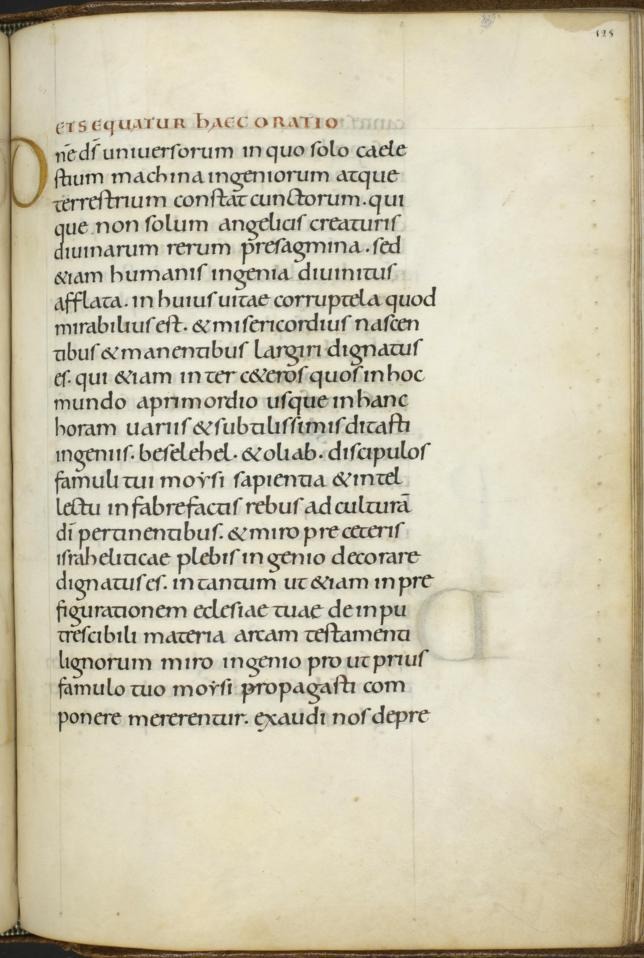 128
ETSEQUATUR HAEC ORATIO
Dn̄e ds̄ uniuersorum in quo solo caele
stium machina ingeniorum atque
terrestrium constat cunctorum. qui
que non solum angelicis creaturis
diuinarum rerum p̄resagmina. sed
&iam humanis ingenia diuinitus
afflata. in huius uitae corruptela quod
mirabilius est. & misericordius nascen
tibus & manentibus largiri dignatus
es. qui &iam inter c&eros quos in hoc
mundo a primordio usque in hanc
horam uariis & subtilissimis ditasti
ingeniis. beselehel. & oliab. discipulos
famuli tui moysi sapientia & intel
lectu in fabrefactis rebus ad culturā
dī pertinentibus. & miro pre ceteris
israheliticae plebis ingenio decorare
dignatus es. in tantum ut &iam in pre
figurationem eclesiae tuae de inpu
trescibili materia arcam testamenti
lignorum miro ingenio prout prius
famulo tuo moysi propagasti com
ponere mererentur. exaudi nos depre